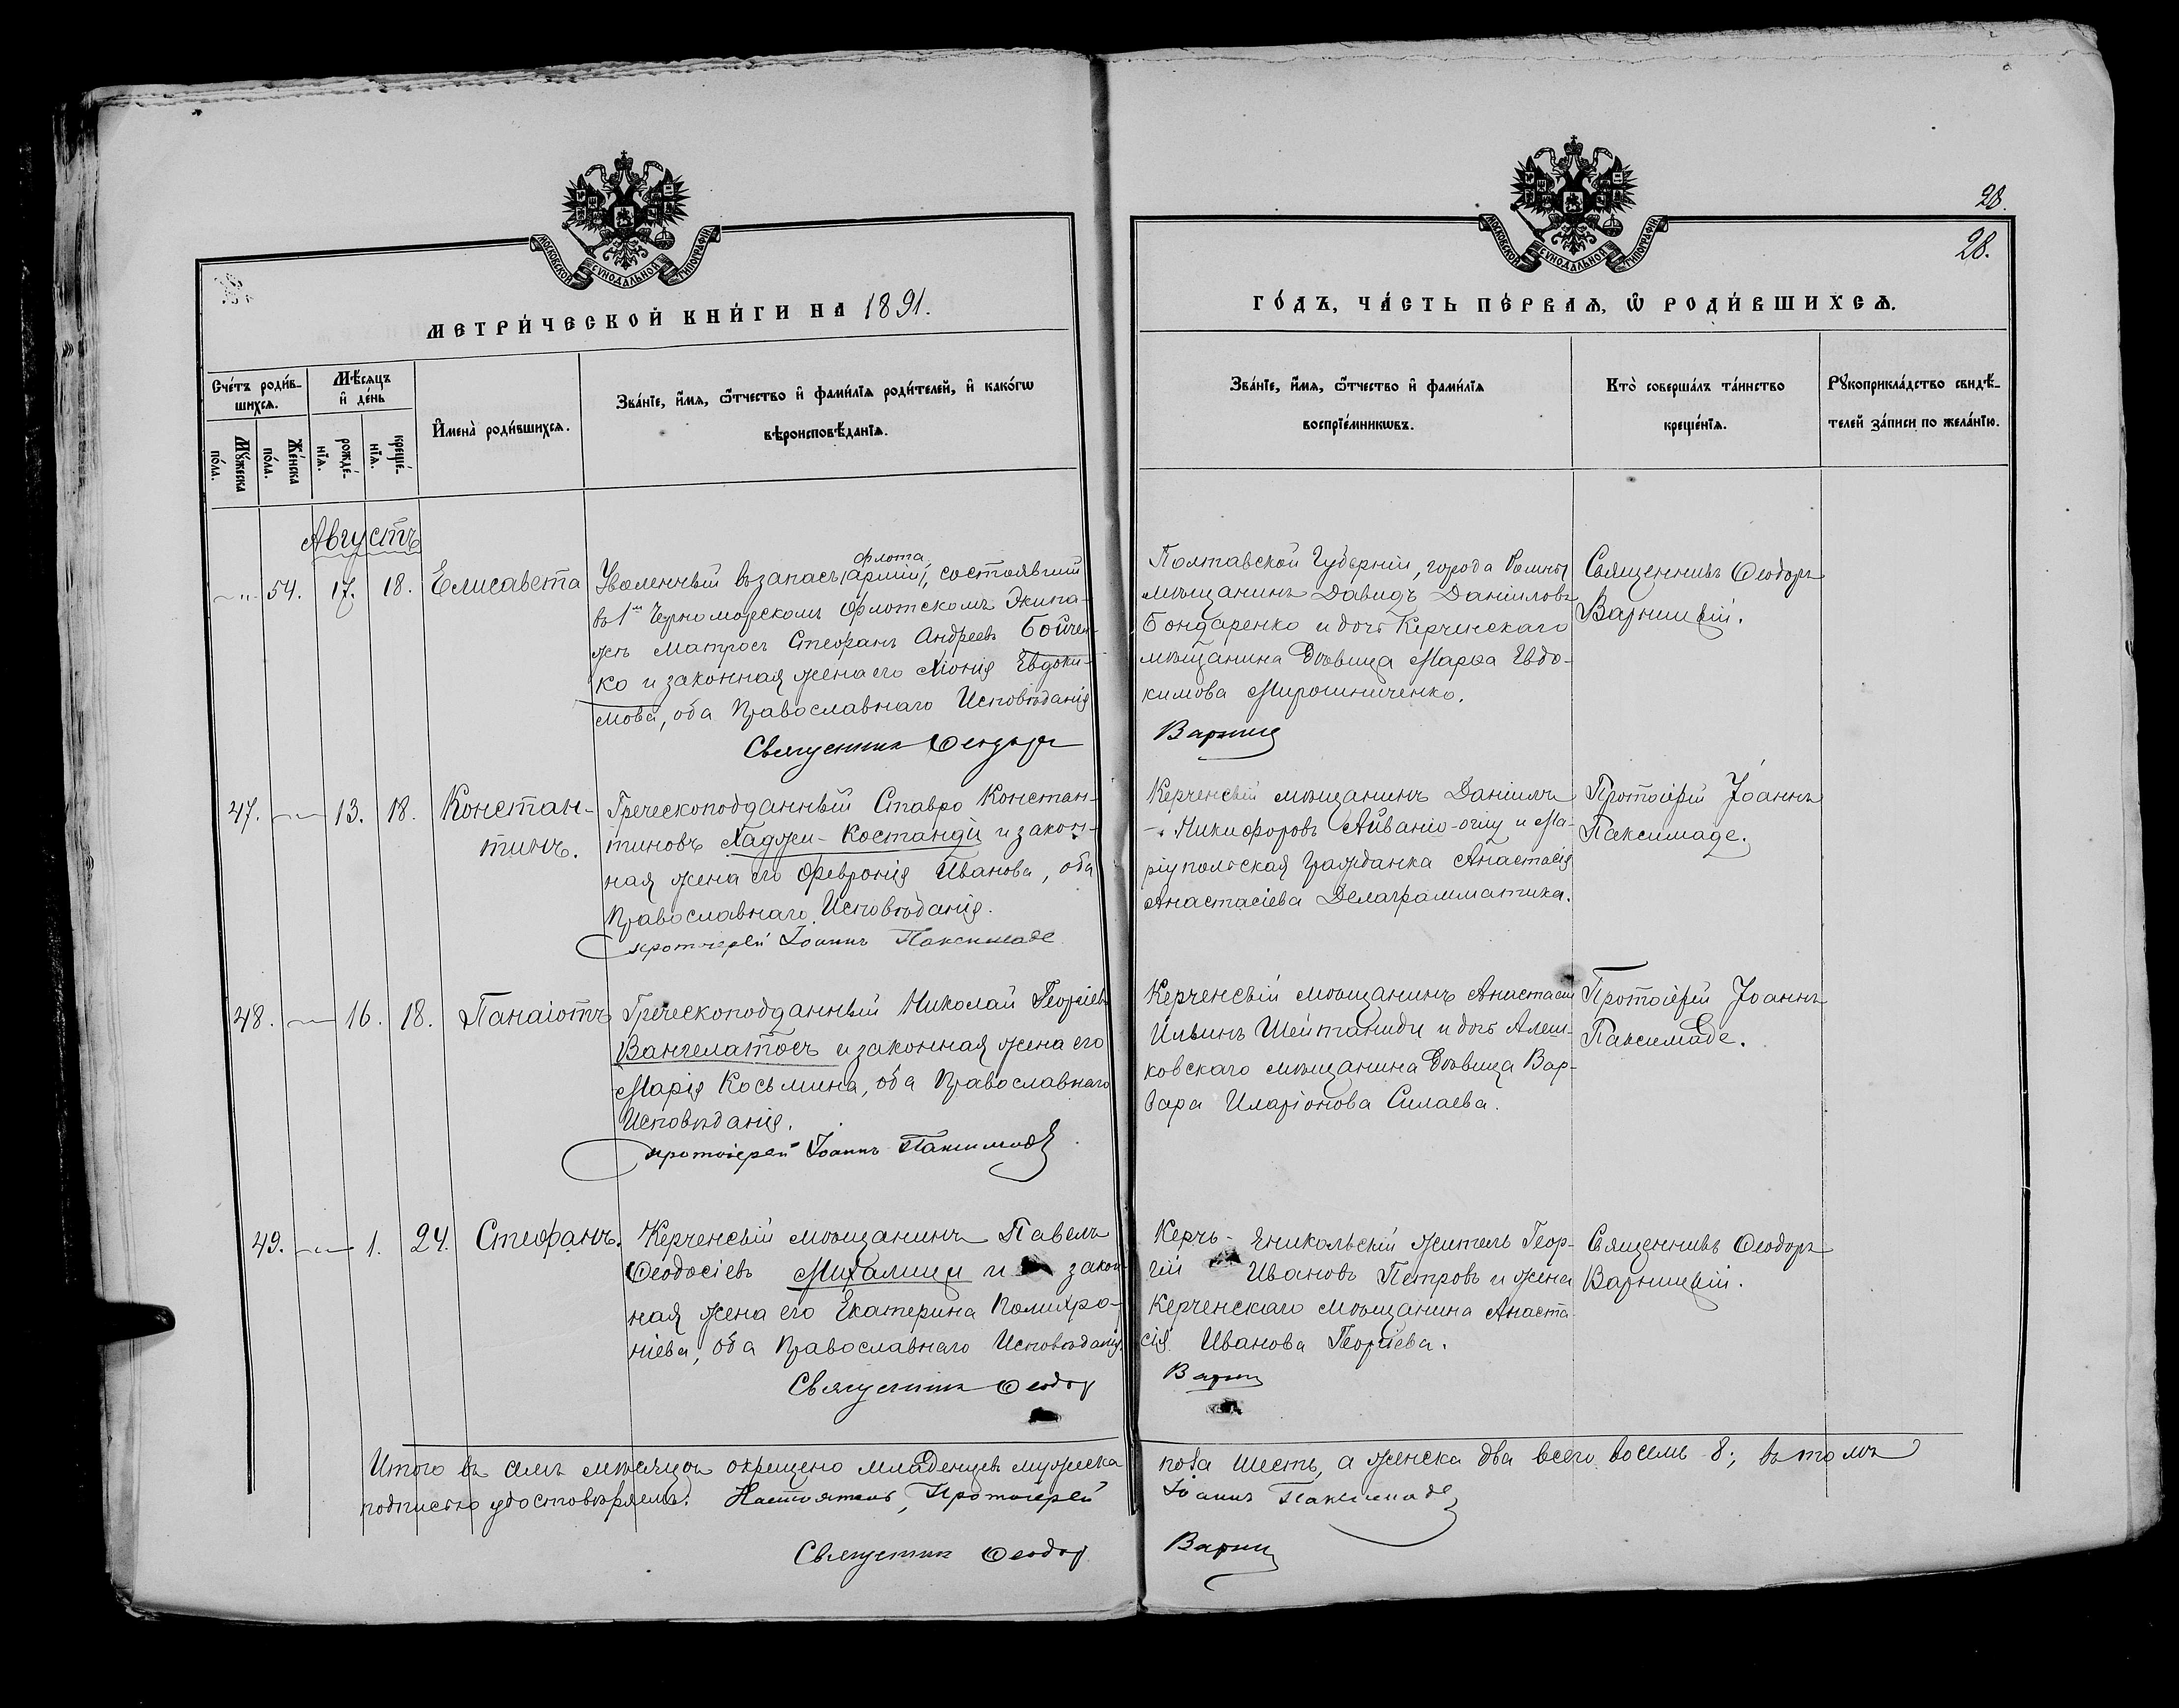 28.
28.
МОСКОВСКОЙ СѴНОДАЛЬНОЙ ТИПОГРАФІИ
МОСКОВСКОЙ СѴНОДАЛЬНОЙ ТИПОГРАФІИ
МЕТРИ́ЧЕСКОЙ КНИ́ГИ НА 1891.
ГО́ДЪ, ЧА́СТЬ ПЕ́РВАѦ, Ѿ РОДИ́ВШИХСѦ.
Сче́тъ роди́в-
шихсѧ.
Мꙋ́жеска
по́ла.
Же́нска
по́ла.
Мѣ́сяцъ
и҆ де́нь
рожде́-
нїѧ.
креще́-
нїѧ.
И҆мена̀ роди́вшихсѧ.
Зва́нїе, и҆́мѧ, ѻ҆́тчество и҆ фами́лїѧ роди́телей, и҆ како́гѡ
вѣроисповѣ́данїѧ.
Зва́нїе, и҆́мѧ, ѻ҆́тчество и҆ фами́лїѧ
воспрїе́мникѡвъ.
Кто̀ соверша́лъ та́инство
креще́нїѧ.
Рꙋкоприкла́дство свидѣ́-
телей за́писи по жела́нїю.
Августъ
54. 17. 18. Елисавета
флота
Уволенный въ запасъ (арміи), состоявшій
въ 1м Черноморскомъ Флотскомъ Экипа-
жѣ матросъ Стефанъ Андреевъ Бойчен-
ко и законная жена его Хіонія Евдоки-
мова, оба Православнаго Исповѣданія
Священникъ Ѳеодоръ
Полтавской Губерніи, города Ромны
мѣщанинъ Давидъ Даніиловъ
Бондаренко и дочь Керченскаго
мѣщанина дѣвица Марѳа Евдо-
кимова Мирошниченко.
Варниц
Священникъ Ѳеодоръ
Варницкій.
47. 13. 18. Констан-
тинъ.
Греческоподданный Ставро Констан-
тиновъ Хаджи-Костанди и закон-
ная жена его Февронія Иванова, оба
Православнаго Исповѣданія.
протоіерей Іоаннъ Паксимаде
Керченскій мѣщанинъ Даніилъ
Никифоровъ Айваніо-оглу и Ма-
ріупольская гражданка Анастасія
Анастасіева Делаграмматика.
Протоіерей Іоаннъ
Паксимаде.
48. 16. 18. Панаіотъ
Греческоподданный Николай Георгіевъ
Вангелатосъ и законная жена его
Марія Косьмина, оба Православнаго
Исповѣданія.
протоіерей Іоаннъ Паксимаде
Керченскій мѣщанинъ Анастасій
Ильинъ Шейтаниди и дочь Алеш-
ковскаго мѣщанина дѣвица Вар-
вара Иларіонова Силаева.
Протоіерей Іоаннъ
Паксимаде.
49. 1. 24. Стефанъ.
Керченскій мѣщанинъ Павелъ
Ѳеодосіевъ Михалици и закон-
ная жена его Екатерина Полихро-
ніева, оба Православнаго Исповѣданія
Священникъ Ѳеодор
Керчь-Еникольскій житель Геор-
гій Ивановъ Петровъ и жена
Керченскаго мѣщанина Анаста-
сія Иванова Георгіева.
Варниц
Священникъ Ѳеодоръ
Варницкій.
Итого въ семъ мѣсяцѣ окрещено младенцевъ мужеска пола шесть, а женска два всего восемь 8; въ томъ
подписью удостовѣряемъ: Настоятель, Протоіерей Іоаннъ Паксимаде
Священникъ Ѳеодор Варниц